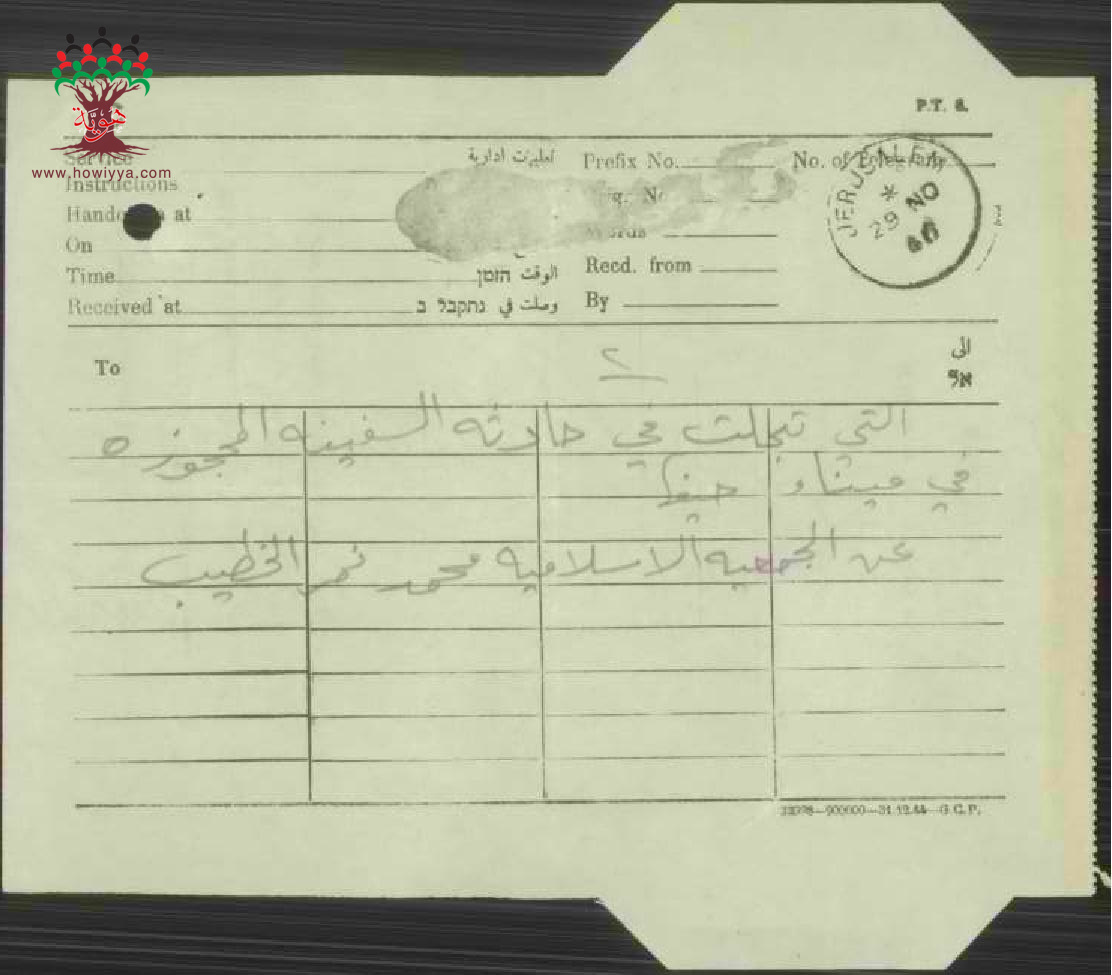 هويّة
www.howiyya.com
P.T. 8.
Service
تعليمات ادارية
Prefix No.
No. of Telegram
Instructions
Handed in at
On
Words
Time
الوقت הזמן
Recd. from
Received at
وصلت في נתקבל ב
By
JERUSALEM
29 NO
To
٢
الى
אל
التي تجلت في حادثه السفينه المحجوزه
في ميناء حيفا
عن الجمعيه الاسلاميه محمد نمر الخطيب
31.12.44—G.C.P.